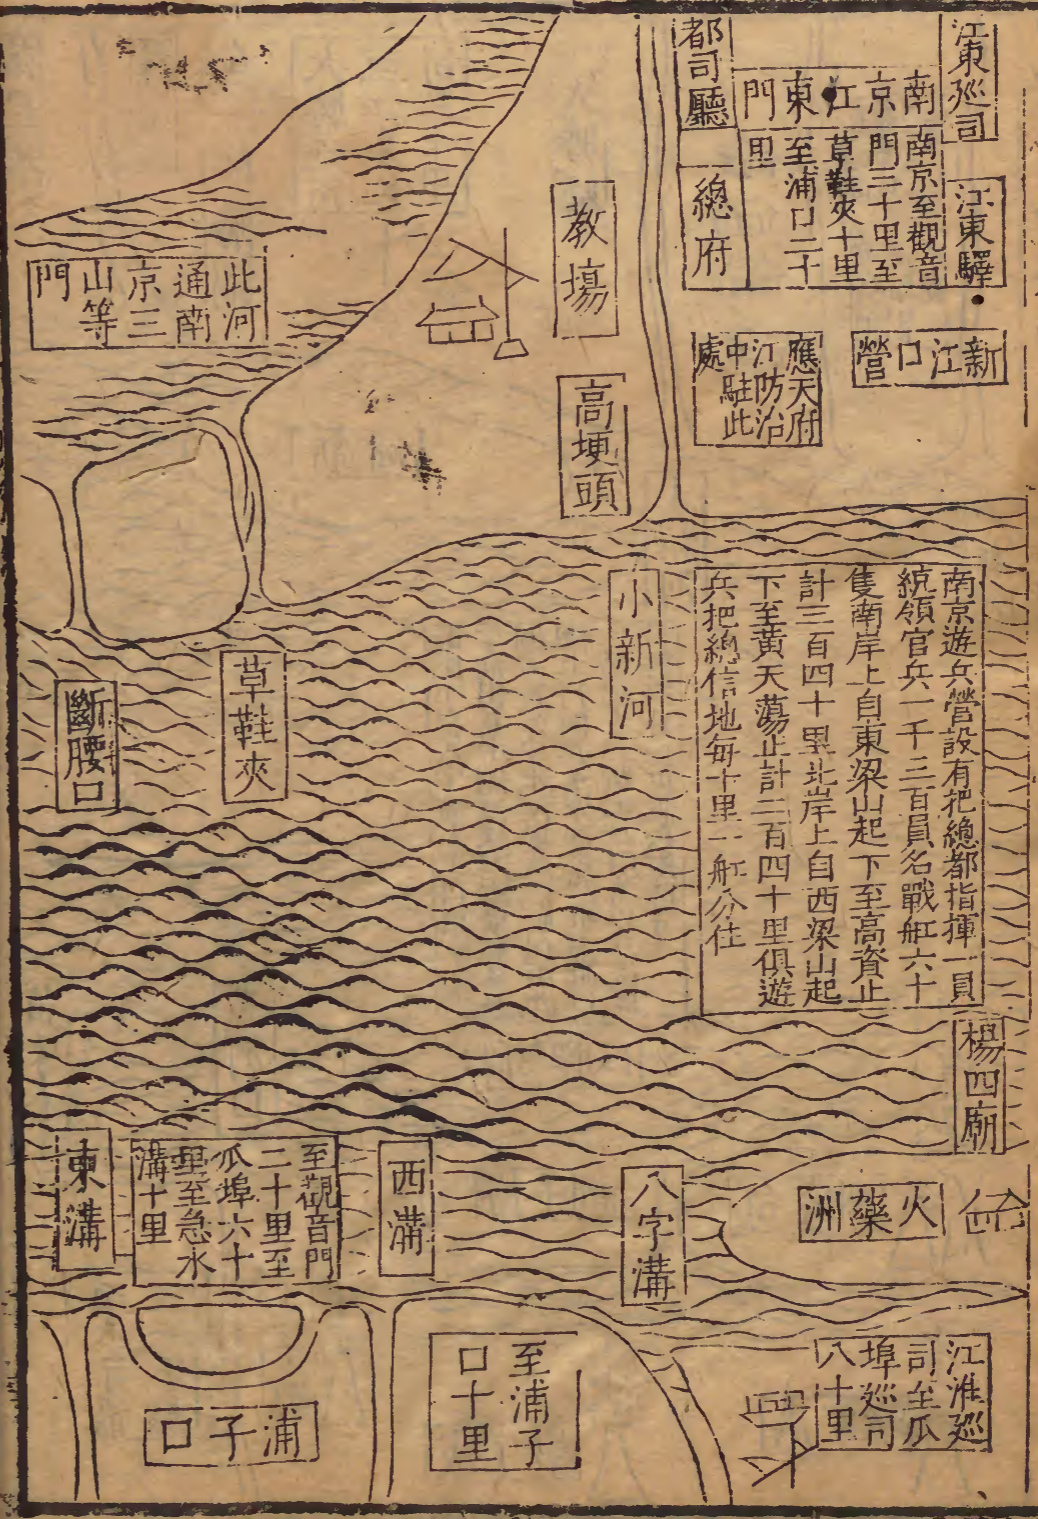 江東巡司
南京江東門
南京至觀音
門三十里至
草鞋夾十里
至浦口二十
里
都司廳
總府
江東驛
新江口營
應天府
江防治
中駐此
處
教場
高埂頭
此河
通南
京三
山等
門
小新河
南京遊兵營設有把總都指揮一員
統領官兵一千三百員名戰舡六十
隻南岸上自東梁山起下至高資止
計三百四十里北岸上自西梁山起
下至黃天蕩止計二百四十里俱遊
兵把總信地每十里一舡分住
草鞋夾
斷腰口
楊四廟
火藥洲
八字溝
西溝
至觀音門
二十里至
瓜埠六十
里至急水
溝十里
東溝
江淮巡
司至瓜
埠巡司
八十里
至浦子
口十里
浦子口